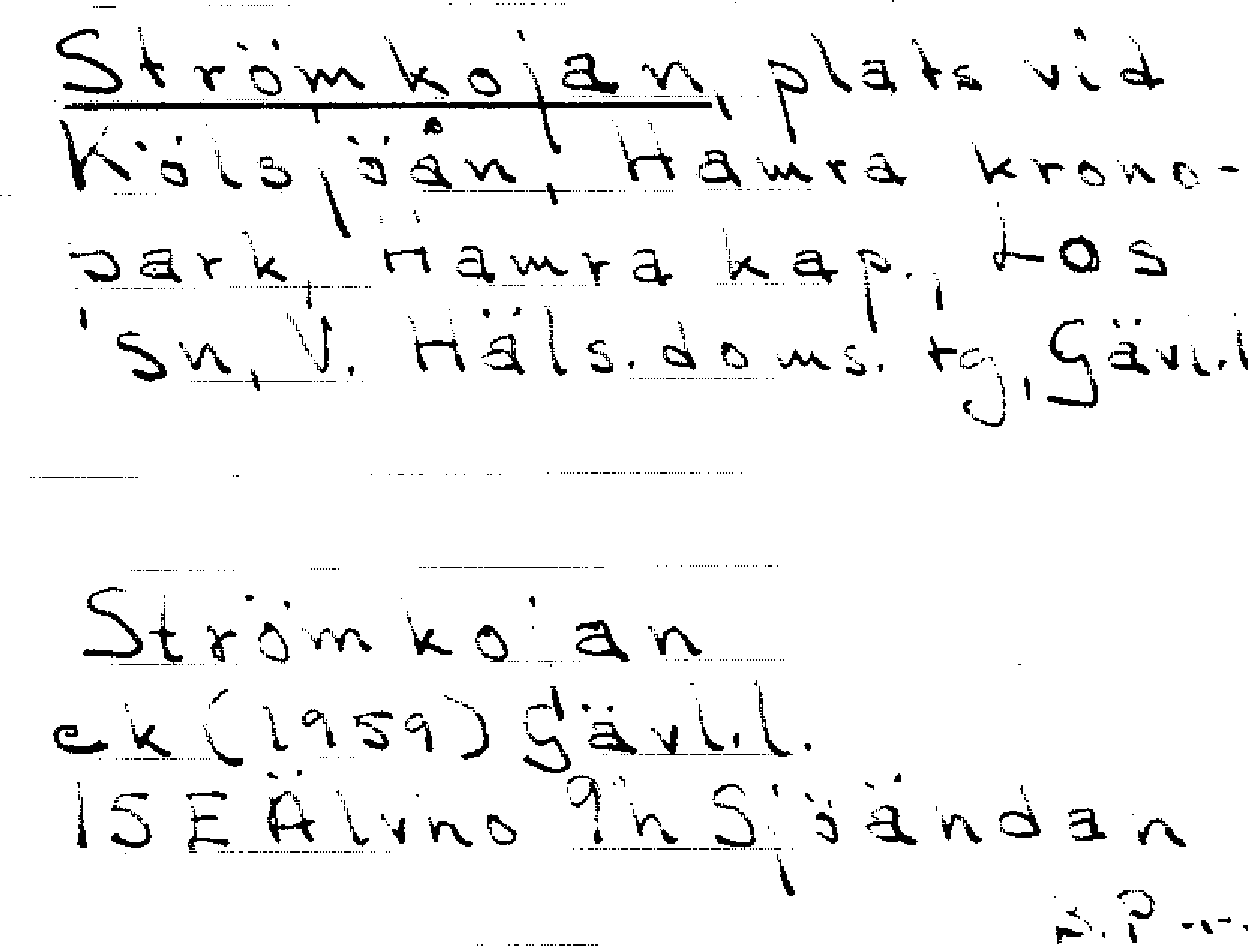 Strömkojan, plats vid
Kölsjöån, Hamra krono-
park, Hamra kap., Los
sn, V. Häls. doms. tg, Gävl.l
Strömkojan
ek (1959) Gävl.l.
15E Älvho 9h Sjöändan